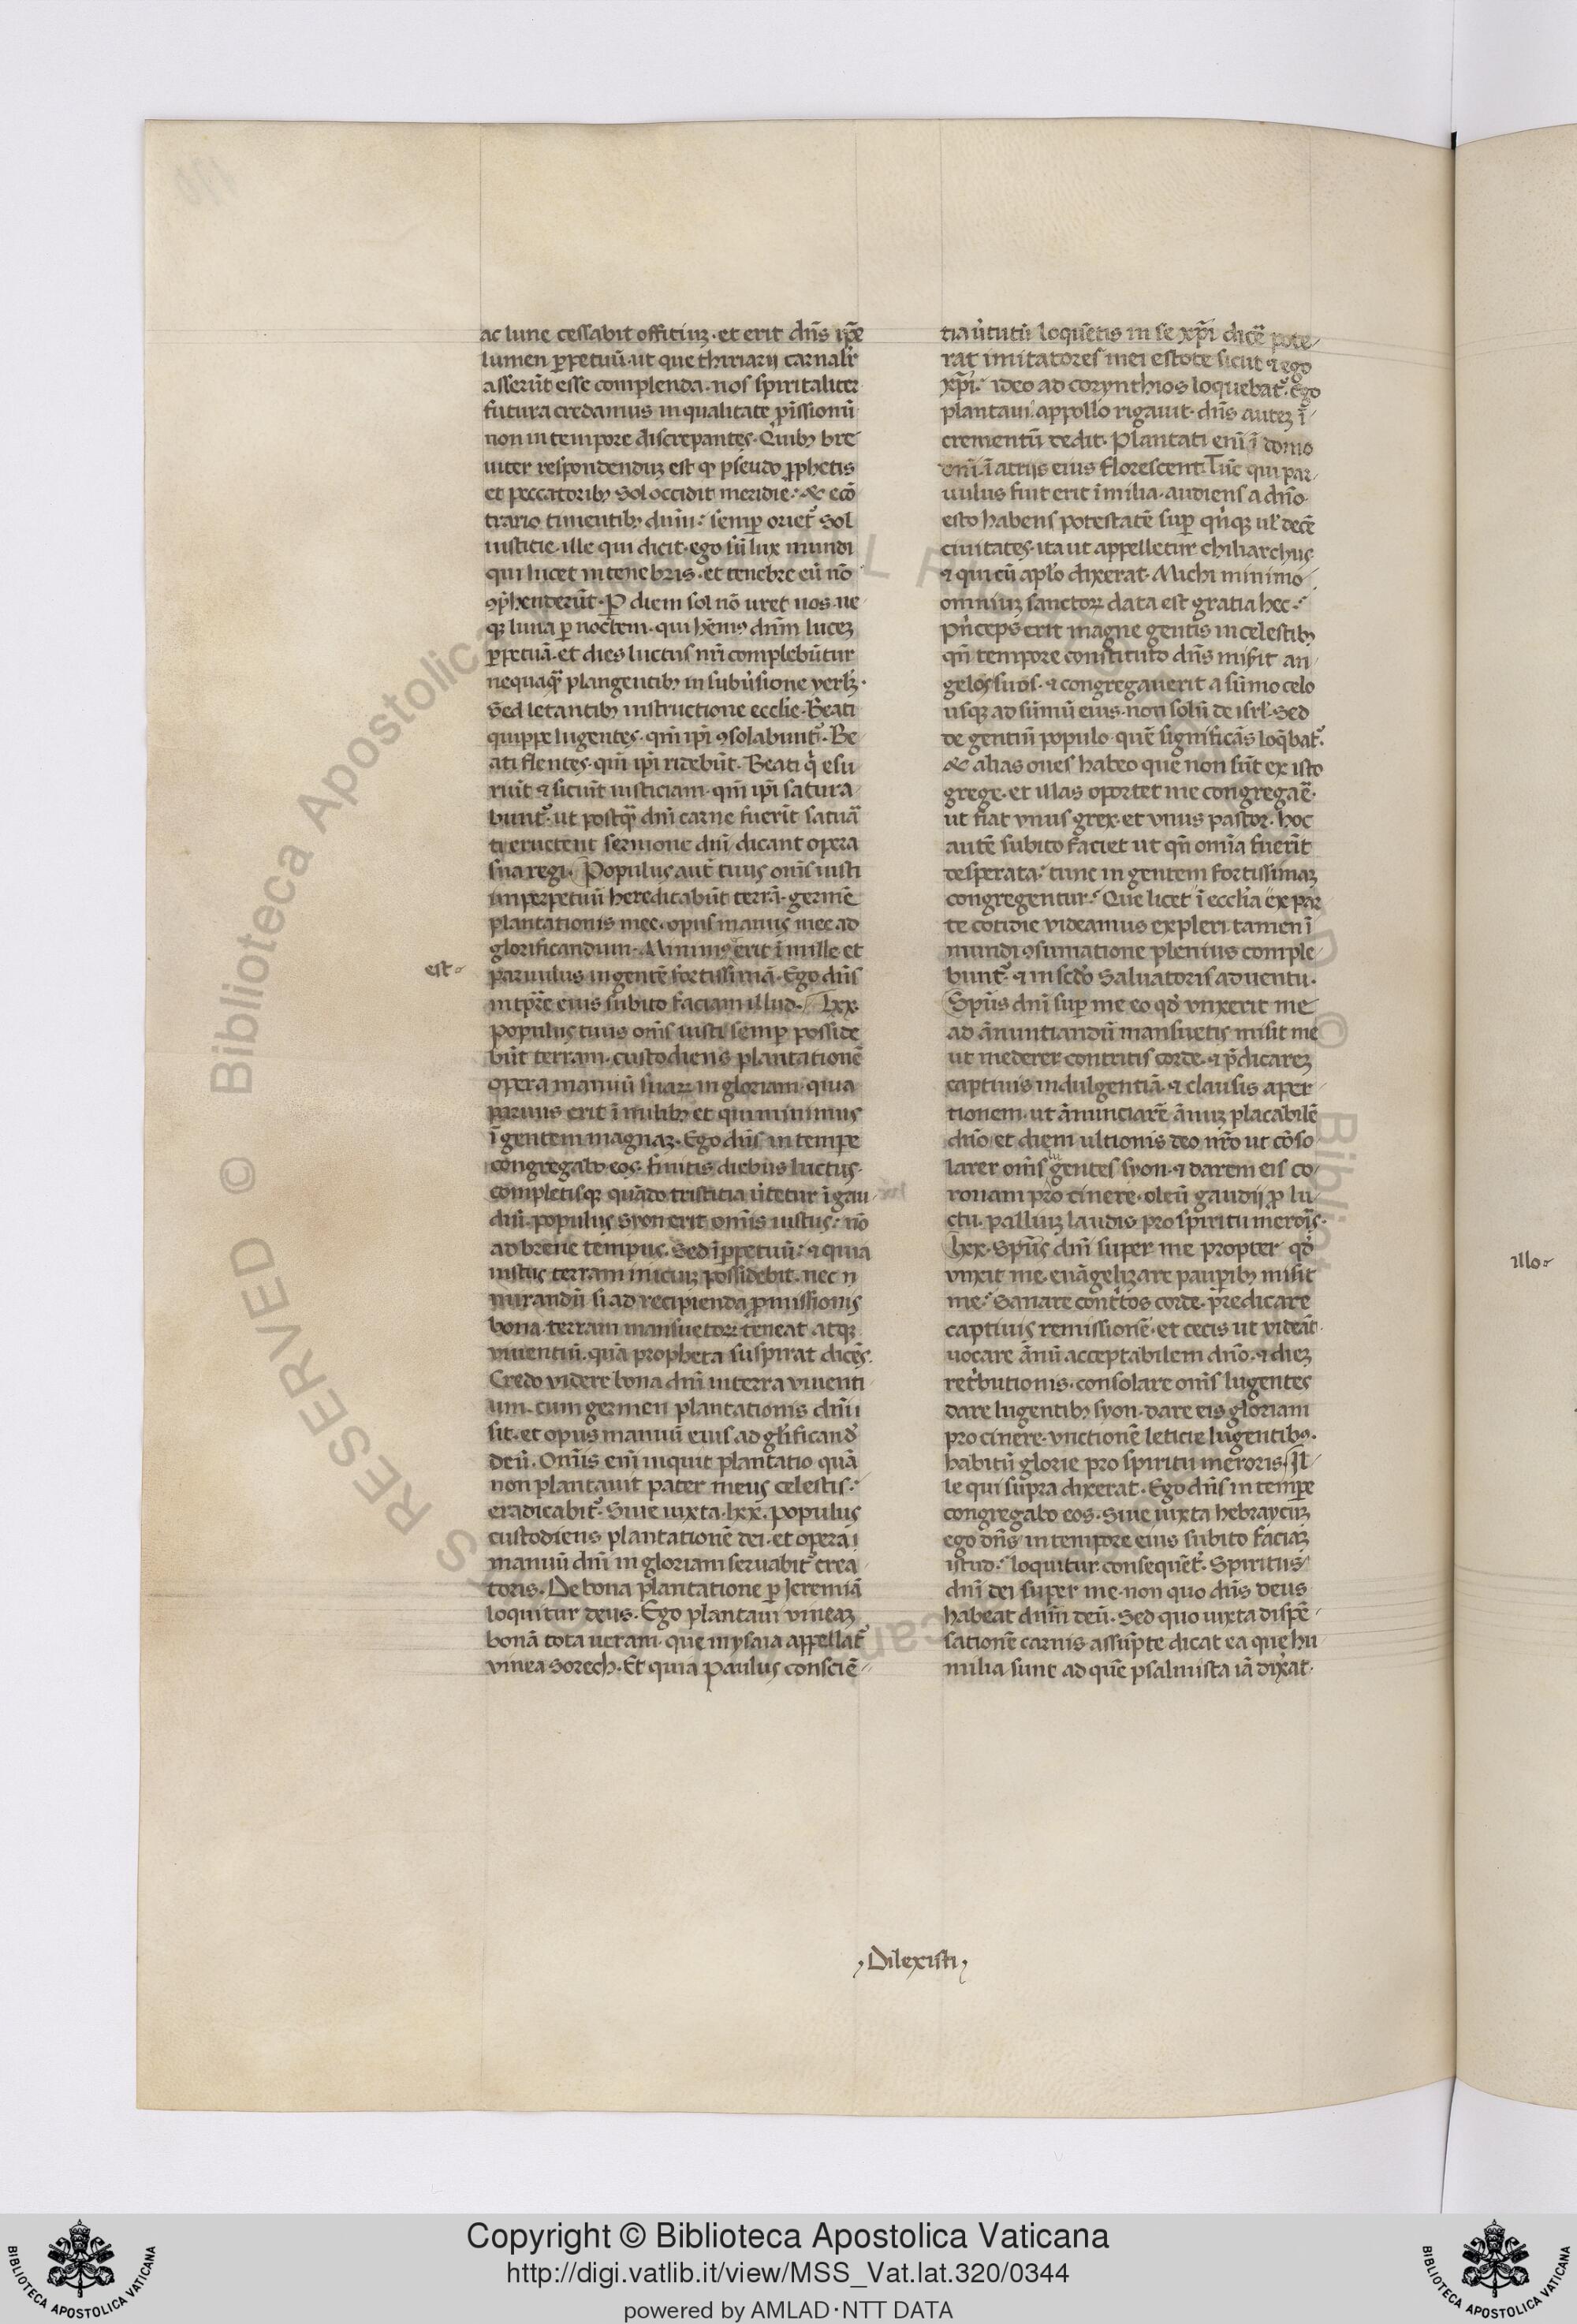 ac lune cessabit offitiuꝫ. et erit dn̄s ip̄e
lumen ꝑpetuū. ut que chiriarij carnalr̄
asserūt esse complenda. nos spiritaliter
futura credamus in qualitate ꝓmissionū
non in tempore discrepantes. Quibꝫ bre
uiter respondenduꝫ est qꝫ pseudo ꝓphetis
et peccatoribꝫ sol occidit meridie: & ecō
trario timentibꝫ dnm̄: semꝑ oriet᷑ sol
iusticie. ille qui dicit. ego sū lux mundi
qui lucet in tenebris. et tenebre eū nō
ꝯp̄henderūt. Ꝑ diem sol nō uret uos. ne
qꝫ luna ꝑ noctem. qui hēmꝰ dnm̄ luceꝫ
ꝑpetuā. et dies luctus nr̄i complebūtur
nequaqꝫ plangentibꝫ in subuersione
Sed letantibꝫ instructione ecclie. Beati
quippe lugentes. qm̄ ipī ꝯsolabunt᷑. Be
ati flentes. qm̄ ipī ridebūt. Beati qi esu
riūt & siciūt iusticiam. qm̄ ipī satura
bunt᷑. ut postqꝫ dnī carne fuerīt satua
ti eructent sermone dnī. dicant opera
sua regi. Populus aut̄ tuus om̄s iusti
in perpetuū hereditabūt terrā. germē
plantationis mee. opus manus mee ad
glorificandum. Minimꝰ erit ī mille et
est
paruulus in gentē fortissimā. Ego dn̄s
in tp̄re eius subito faciam illud. Lxx.
Populus tuus om̄s iusti semꝑ posside
būt terram. custodiens plantationē
opera manuū suaꝝ in gloriam. quia
paruus erit ī milibꝫ et qui minimus
ī gentem magnaꝫ. Ego dn̄s in tempe
congregabo eos. finitis diebus luctus.
completisqꝫ quādo tristitia u̓tetur ī gau
diū. populus syon erit om̄is iustus: nō
ad breue tempus. Sed ī ꝑpetuū: & quia
iustus terram inicuiꝫ possidebit. nec n̄
mirandū si ad recipienda ꝓmissionis
bona. terram mansuetoꝝ teneat. atqꝫ
viuentiū. quā propheta suspirat dicēs.
Credo videre bona dnī in terra viuenti
um. cum germen plantationis dnī
sit. et opus manuū eius ad glīficand̄
deū. Om̄is enī inquit plantatio quā
non plantauit pater meus celestis:
eradicabit᷑. Siue iuxta. lxx. populus
custodiens plantationē dei. et opera
manuū dnī in gloriam seruabit᷑ crea
toris. De bona plantatione ꝑ Jeremiā
loquitur deus. Ego plantaui vineaꝫ
bonā tota ueram. que in ysaia appellat᷑
vinea sorech. Et quia Paulus consciē
tia u̓tutū loquētis in se xp̄i dice᷑ pote
rat imitatores mei estote sicut & ego
xp̄i: ideo ad corynthios loquebat᷑. Ego
plantaui. appollo rigauit. dn̄s auteꝫ ī
crementū dedit. Plantati enī ī domo
dnī. ī atrijs eius florescent. Tūc qui par
uulus fuit erit ī milia. audiens a dn̄o.
esto habens potestatē suꝑ qn̓qꝫ ul̓ decē
ciuitates. ita ut appelletur chiliarchus
& qui cū aplō dixerat. Michi minimo
omniuꝫ sanctoꝝ data est gratia hec:
pn̓ceps erit magne gentis in celestibꝫ
qn̄ tempore constituto dn̄s misit an
gelos suos. & congregauerit a sūmo celo
usqꝫ ad sūmū eius. non solū de isrl̓. Sed
de gentiū populo. quē significās loq̄bat᷑.
& alias oues habeo que non sūt ex isto
grege. et illas oportet me congregae᷑.
ut fiat vnus grex. et vnus pastor. hoc
autē subito faciet ut qn̄ omīa fuerīt
desperata: tunc in gentem fortissimaꝫ
congregentur: Que licet ī ecclīa ex par
te cotidie videamus expleri. tamen ī
mundi ꝯsumatione plenius comple
bunt᷑. & in sedo Saluatoris aduentu.
Spūs dnī suꝑ me eo qd̄ vnxerit me
ad ānuntiandū mansuetis misit me
ut mederer contritis corde. & p̄dicareꝫ
captiuis indulgentiā. & clausis aper
tionem. ut ānunciarē ānuꝫ placabilē
dn̄o. et diem ultionis deo nr̄o ut cōso
larer om̄s lugentes syon. & darem eis co
ronam pro cinere. oleū gaudij ꝓ lu
ctu. palliuꝫ laudis pro spiritu meroīs.
Lxx. Spūs dnī super me propter qd̄
vnxit me. euāgelizare pauꝑibꝫ misit
me: Sanare contr̓tos corde. predicare
captiuis remissionē. et cecis ut videāt.
uocare ānū acceptabilem dn̄o. & dieꝫ
retr̓butionis. consolare om̄s lugentes
dare lugentibꝫ syon. dare eis gloriam
pro cinere. vnctionē leticie lugentibꝰ.
habitū glorie pro spiritu meroris. Il
le qui supra dixerat. Ego dn̄s in tempe
congregabo eos. Siue iuxta hebraycuꝫ
ego dn̄s in tempore eius subito faciaꝫ
istud: loquitur consequēt᷑. Spiritus
dnī dei super me. non quo dn̄s deus
habeat dnm̄ deū. Sed quo iuxta dispē
sationē carnis assūpte dicat ea que hu
milia sunt ad quē psalmista iā dixat.
illo
Dilexisti
Copyright © Biblioteca Apostolica Vaticana
http://digi.vatlib.it/view/MSS_Vat.lat.320/0344
powered by AMLAD·NTT DATA
BIBLIOTECA APOSTOLICA VATICANA
BIBLIOTECA APOSTOLICA VATICANA